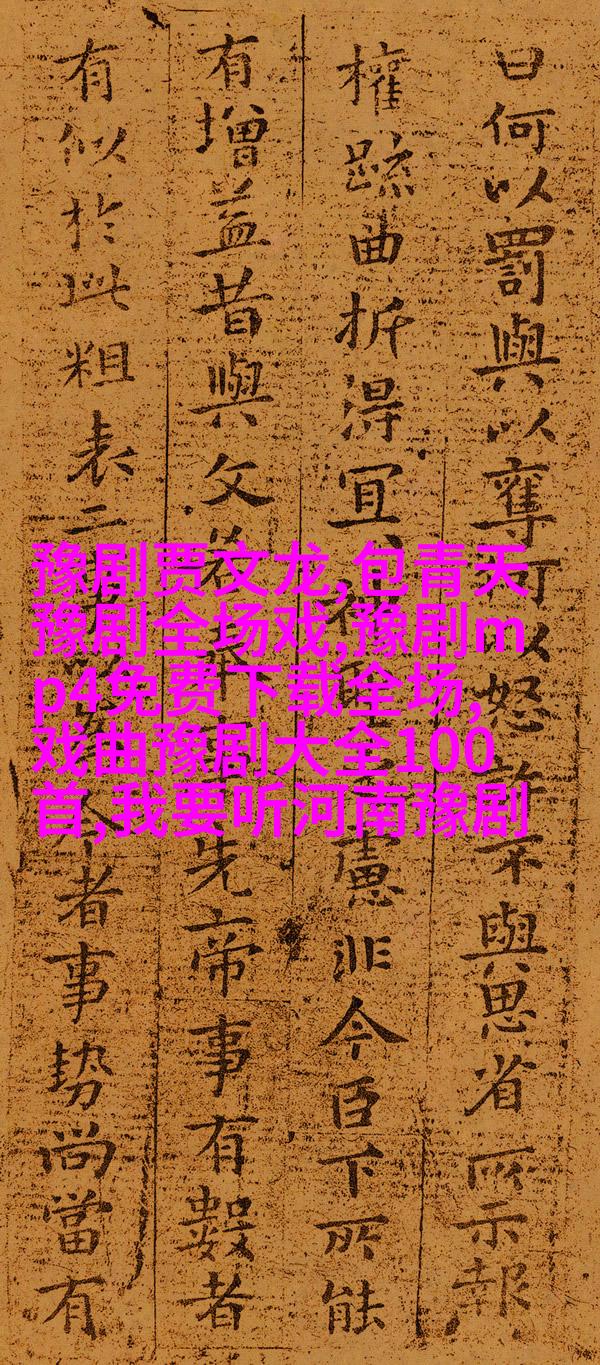 曰何以罰與以奪可以怒許不與思省所示報
權疏曲折得宜慮非今臣下所能
有增益昔與文若奉事先帝事有數者
有似於此粗表二事以為今者事勢尚當有
豫剧贾文龙,包青天
豫剧全场戏,豫剧m
p4免费下载全场,
戏曲豫剧大全100
首,我要听河南豫剧